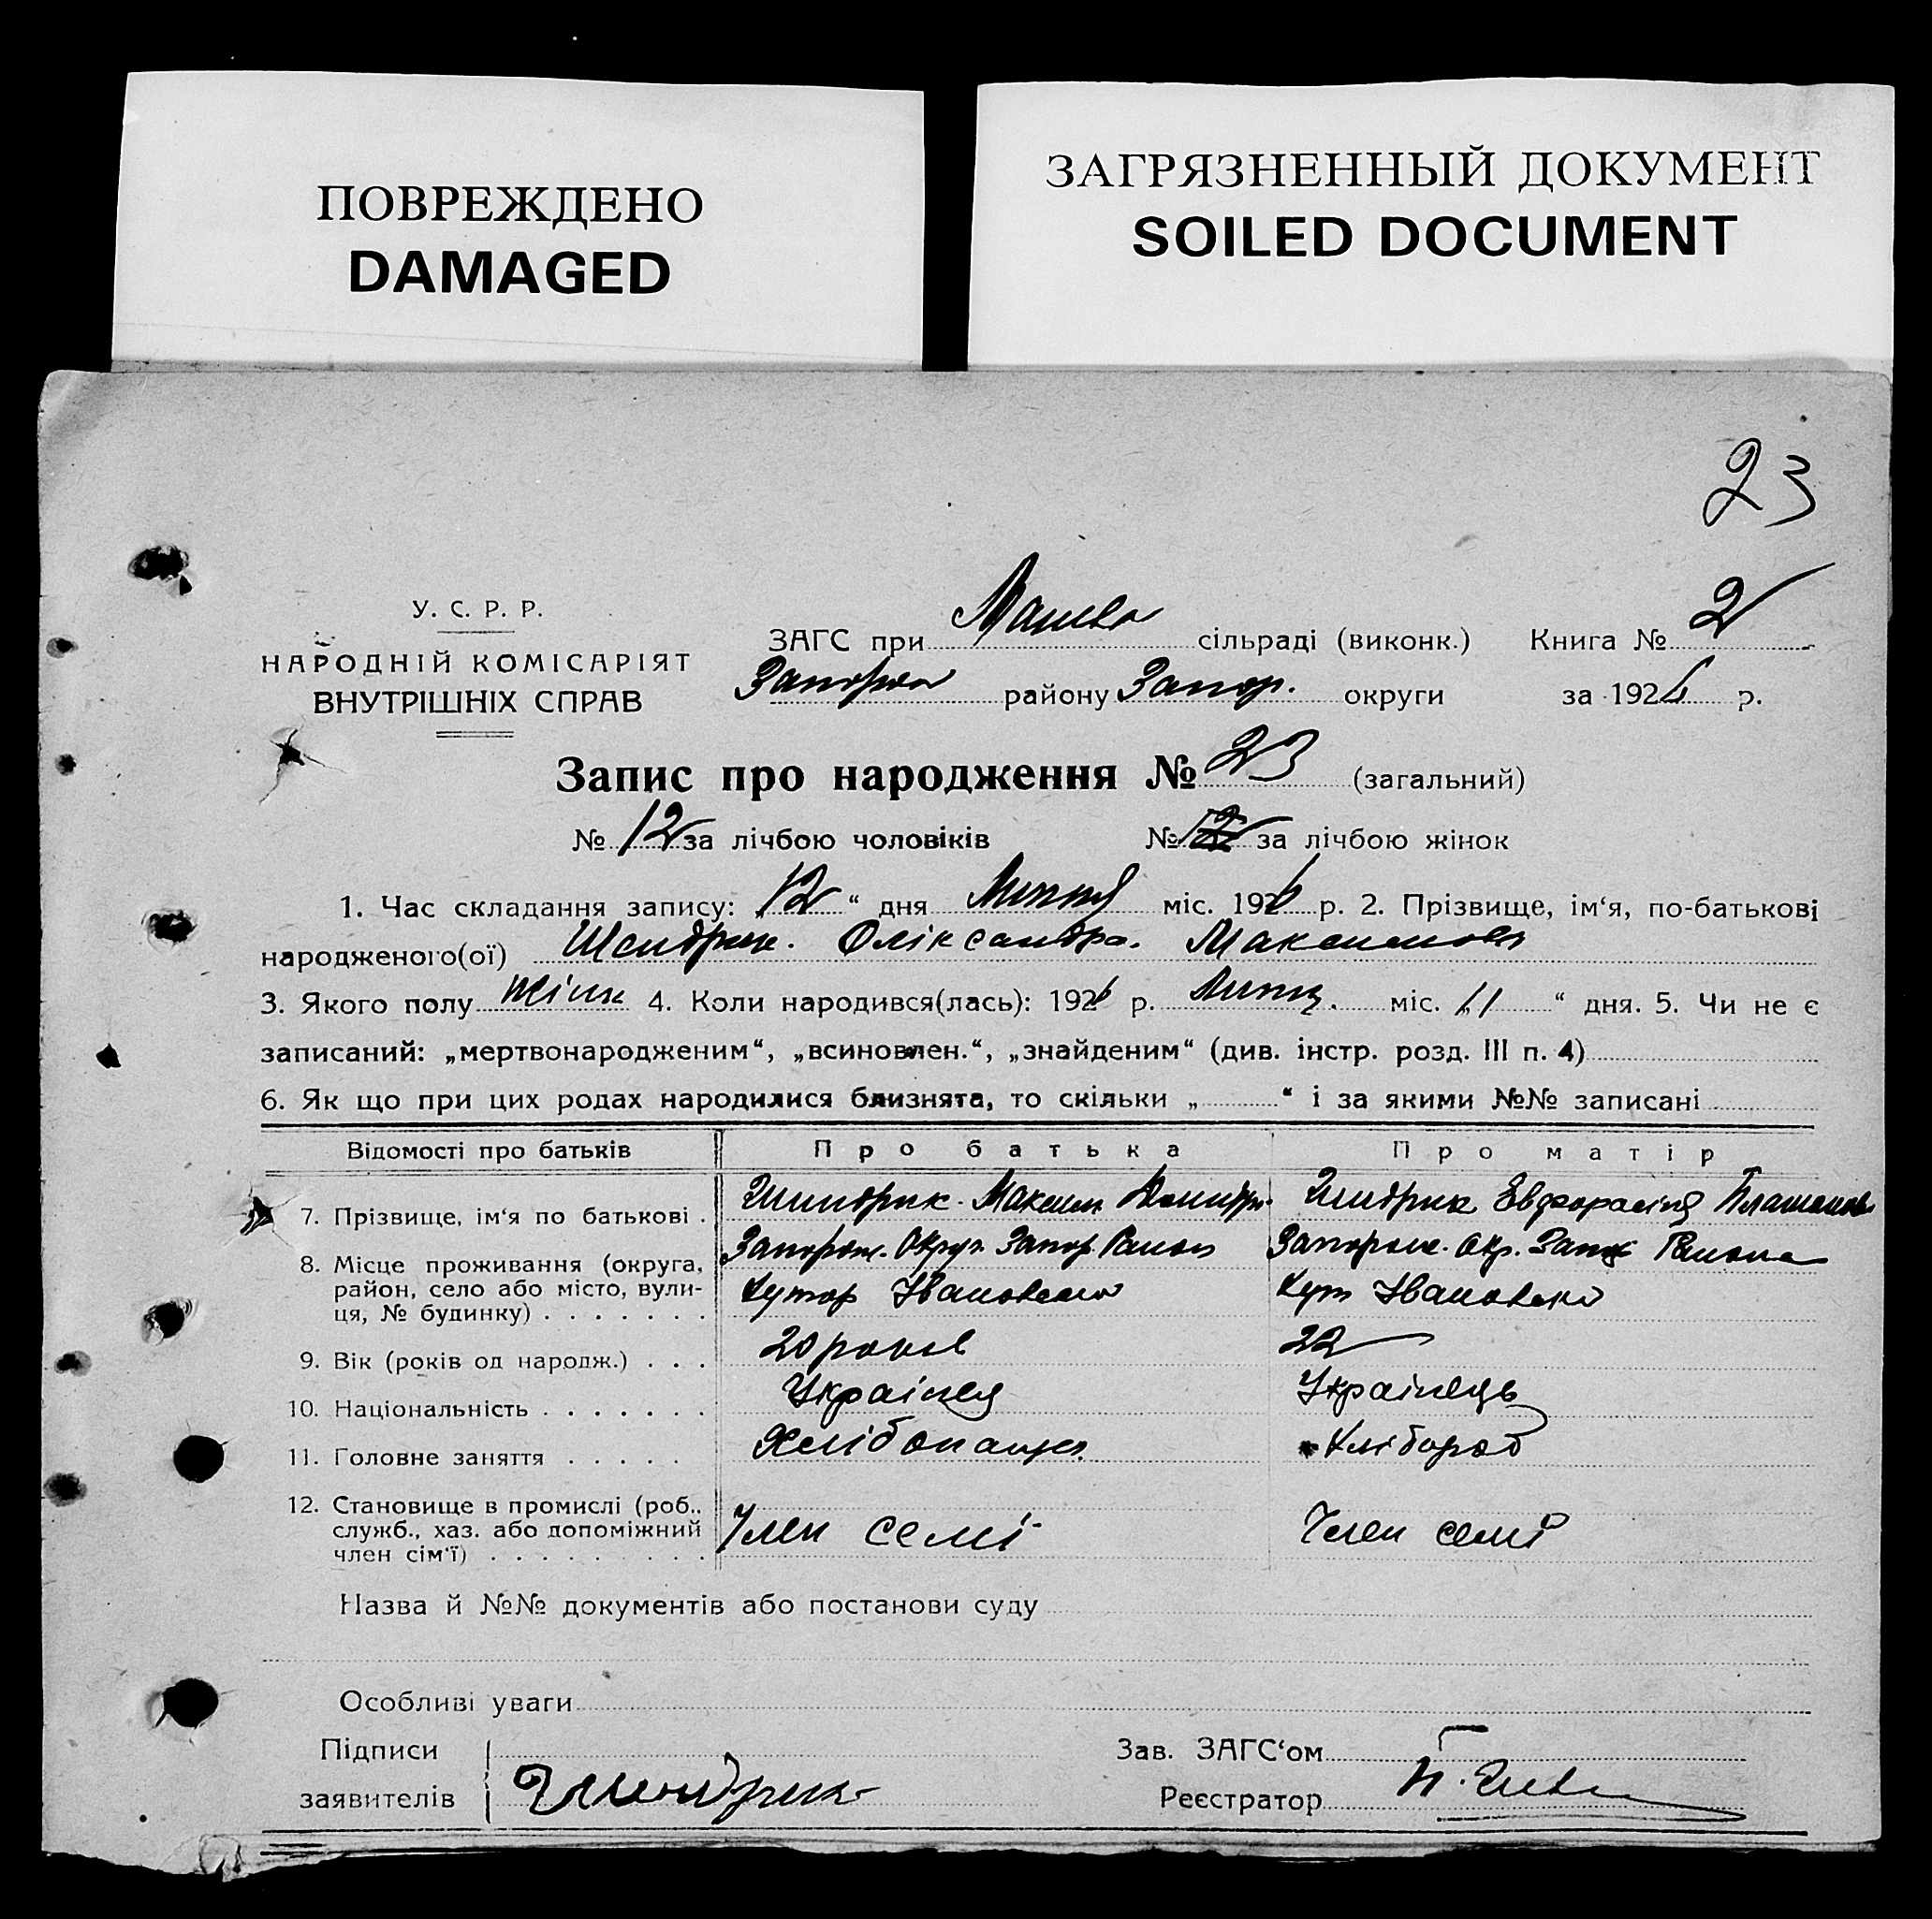 ПОВРЕЖДЕНО
DAMAGED
ЗАГРЯЗНЕННЫЙ ДОКУМЕНТ
SOILED DOCUMENT
23
У. С. Р. Р.
НАРОДНІЙ КОМІСАРІЯТ
ВНУТРІШНІХ СПРАВ
ЗАГС при сільраді (виконк.) Книга № 2
району Запор. округи за 1926 р.
Запис про народження № 23 (загальний)
№ 12 за лічбою чоловіків № за лічбою жінок
1. Час складання запису: „12“ дня Липня міс. 1926 р. 2. Прізвище, ім‘я, по-батькові
народженого(ої) Шендрик. Оліксандра. Максимов
3. Якого полу жінк 4. Коли народився(лась): 1926 р. Липн. міс. „11“ дня. 5. Чи не є
записаний: „мертвонародженим“, „всиновлен.“, „знайденим“ (див. інстр. розд. III п. 4)
6. Як що при цих родах народилися близнята, то скільки „ “ і за якими №№ записані
Відомості про батьків Про батька Про матір
7. Прізвище, ім‘я по батькові . Шендрик Максим Шендрик Евфоросінія Платонов
8. Місце проживання (округа, Запорож. Округ. Запор. Район Запорож. Окр. Району
район, село або місто, вули- Хутор Івановський Хут Івановський
ця, № будинку) . . . . . . .
9. Вік (років од народж.) . . . 20 років 22
10. Національність . . . . . . . Українец Українець
11. Головне заняття . . . . . Хлібопашец. Хлібороб
12. Становище в промислі (роб.,
служб., хаз. або допоміжний Член семі Член семі
член сім‘ї) . . . . . . . . .
Назва й №№ документів або постанови суду
Особливі уваги
Підписи Зав. ЗАГС‘ом
заявителів Шендрик Реєстратор